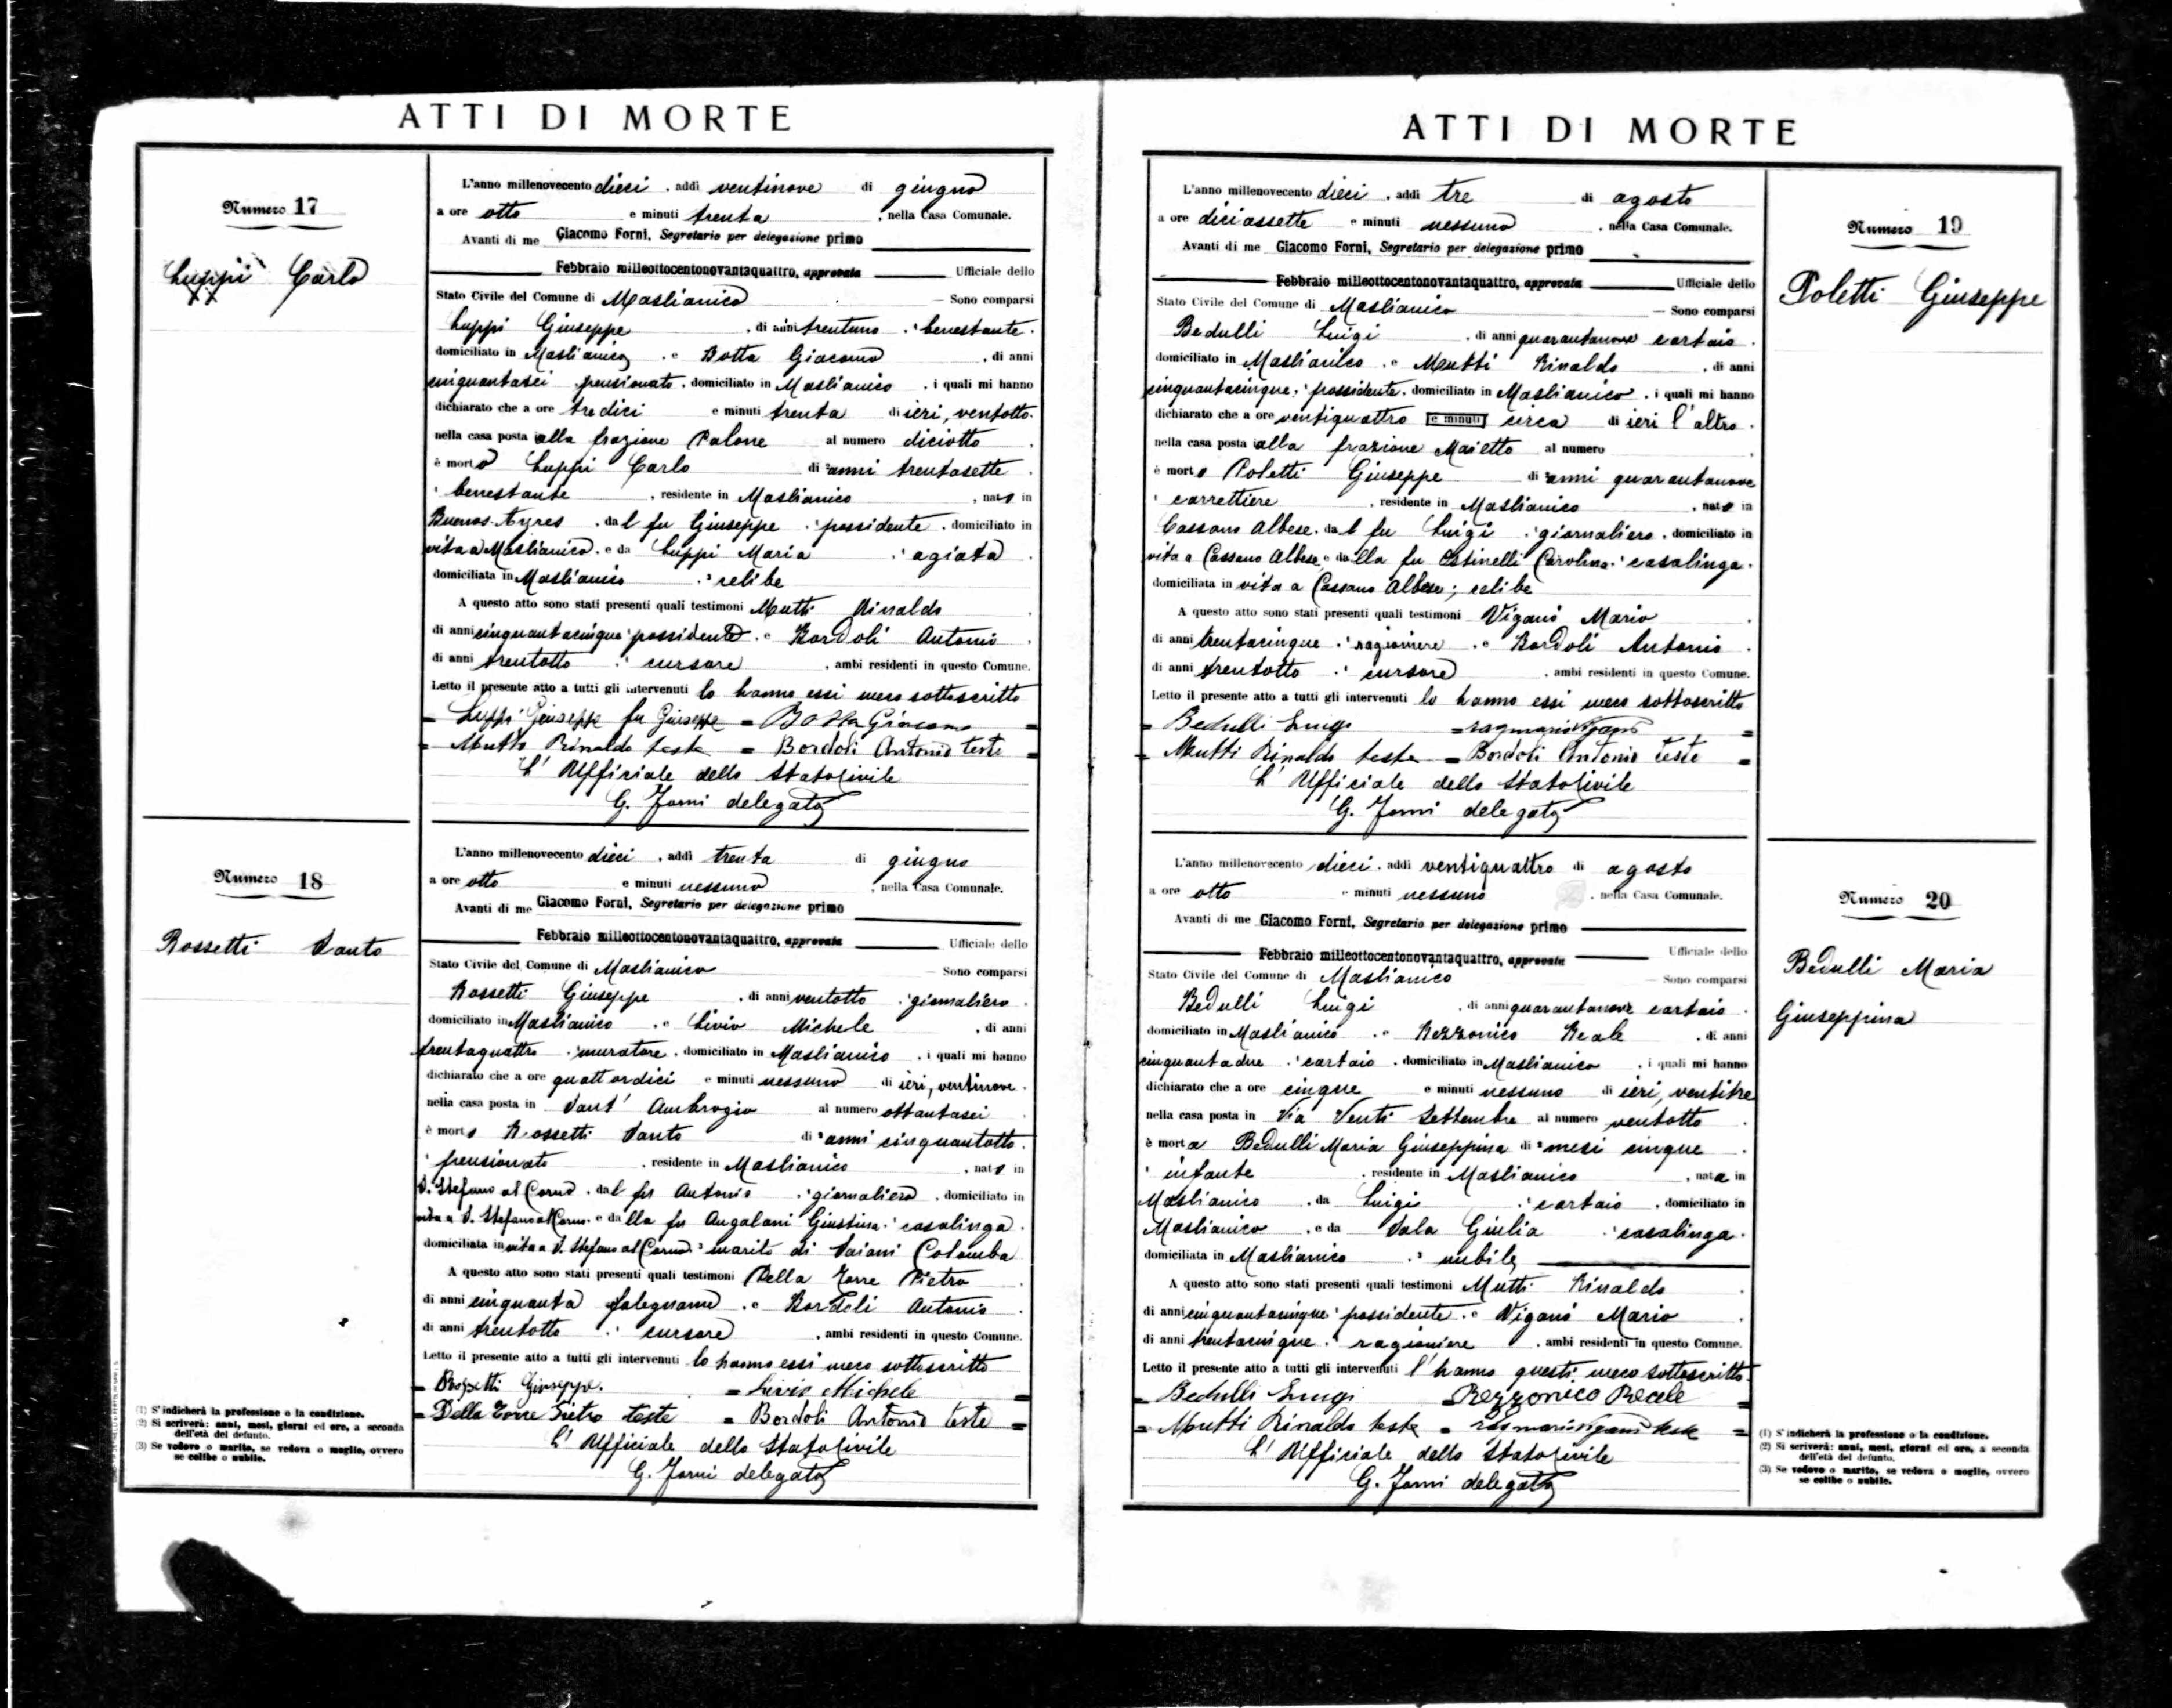 ATTI DI MORTE
Numero 17
Luppi Carlo
L'anno millenovecento dieci, addì ventinove di giugno
a ore otto e minuti trenta, nella Casa Comunale.
Avanti di me Giacomo Forni, Segretario per delegazione primo
Febbraio milleottocentonovantaquattro, approvata Ufficiale dello
Stato Civile del Comune di Maslianico — Sono comparsi
Luppi Giuseppe, di anni trentuno, benestante
domiciliato in Maslianico, e Botta Giacomo, di anni
cinquantasei pensionato, domiciliato in Maslianico, i quali mi hanno
dichiarato che a ore tredici e minuti trenta di ieri, ventotto
nella casa posta alla frazione Palone al numero diciotto
è morto Luppi Carlo di anni trentasette
benestante, residente in Maslianico, nato in
Buenos-Ayres, dal fu Giuseppe, possidente, domiciliato in
vita a Maslianico, e da Luppi Maria, agiata
domiciliata in Maslianico, celibe
A questo atto sono stati presenti quali testimoni Mutti Rinaldo
di anni cinquantacinque possidente, e Bordoli Antonio
di anni trentotto, cursore, ambi residenti in questo Comune.
Letto il presente atto a tutti gli intervenuti lo hanno essi meco sottoscritto
= Luppi Giuseppe fu Giuseppe = Botta Giacomo =
= Mutti Rinaldo teste = Bordoli Antonio teste =
L'Ufficiale dello Stato Civile
G. Forni delegato
Numero 18
Rossetti Santo
L'anno millenovecento dieci, addì trenta di giugno
a ore otto e minuti nessuno, nella Casa Comunale.
Avanti di me Giacomo Forni, Segretario per delegazione primo
Febbraio milleottocentonovantaquattro, approvata Ufficiale dello
Stato Civile del Comune di Maslianico — Sono comparsi
Rossetti Giuseppe, di anni ventotto, giornaliero
domiciliato in Maslianico, e Livio Michele, di anni
trentaquattro, muratore, domiciliato in Maslianico, i quali mi hanno
dichiarato che a ore quattordici e minuti nessuno di ieri, ventinove
nella casa posta in Sant' Ambrogio al numero ottantasei
è morto Rossetti Santo di anni cinquantotto
pensionato, residente in Maslianico, nato in
S. Stefano al Corno, dal fu Antonio, giornaliero, domiciliato in
vita a S. Stefano al Corno, e dalla fu Angalani Giustina, casalinga
domiciliata in vita a S. Stefano al Corno, marito di Saiani Colomba
A questo atto sono stati presenti quali testimoni Della Torre Pietro
di anni cinquanta falegname, e Bordoli Antonio
di anni trentotto, cursore, ambi residenti in questo Comune.
Letto il presente atto a tutti gli intervenuti lo hanno essi meco sottoscritto
= Rossetti Giuseppe. = Livio Michele =
= Della Torre Pietro teste = Bordoli Antonio teste =
L'Ufficiale dello Stato Civile
G. Forni delegato
(1) S'indicherà la professione o la condizione.
(2) Si scriverà: anni, mesi, giorni ed ore, a seconda
dell'età del defunto.
(3) Se vedovo o marito, se vedova o moglie, ovvero
se celibe o nubile.
ATTI DI MORTE
Numero 19
Poletti Giuseppe
L'anno millenovecento dieci, addì tre di agosto
a ore diciassette e minuti nessuno, nella Casa Comunale.
Avanti di me Giacomo Forni, Segretario per delegazione primo
Febbraio milleottocentonovantaquattro, approvata Ufficiale dello
Stato Civile del Comune di Maslianico — Sono comparsi
Bedulli Luigi, di anni quarantanove cartaio
domiciliato in Maslianico, e Mutti Rinaldo, di anni
cinquantacinque, possidente, domiciliato in Maslianico, i quali mi hanno
dichiarato che a ore ventiquattro e minuti circa di ieri l'altro
nella casa posta alla frazione Maietto al numero
è morto Poletti Giuseppe di anni quarantanove
carrettiere, residente in Maslianico, nato in
Cassano Albese, dal fu Luigi, giornaliero, domiciliato in
vita a Cassano Albese, e dalla fu Ostinelli Carolina, casalinga
domiciliata in vita a Cassano Albese; celibe
A questo atto sono stati presenti quali testimoni Viganò Mario
di anni trentacinque, ragioniere, e Bordoli Antonio
di anni trentotto, cursore, ambi residenti in questo Comune.
Letto il presente atto a tutti gli intervenuti lo hanno essi meco sottoscritto
= Bedulli Luigi = rag mario Viganò =
= Mutti Rinaldo teste = Bordoli Antonio teste =
L'Ufficiale dello Stato Civile
G. Forni delegato
Numero 20
Bedulli Maria
Giuseppina
L'anno millenovecento dieci, addì ventiquattro di agosto
a ore otto e minuti nessuno, nella Casa Comunale.
Avanti di me Giacomo Forni, Segretario per delegazione primo
Febbraio milleottocentonovantaquattro, approvata Ufficiale dello
Stato Civile del Comune di Maslianico — Sono comparsi
Bedulli Luigi, di anni quarantanove cartaio
domiciliato in Maslianico, e Rezzonico Reale, di anni
cinquantadue, cartaio, domiciliato in Maslianico, i quali mi hanno
dichiarato che a ore cinque e minuti nessuno di ieri, ventitre
nella casa posta in Via Venti Settembre al numero ventotto
è morta Bedulli Maria Giuseppina di mesi cinque
infante, residente in Maslianico, nata in
Maslianico, da Luigi, cartaio, domiciliato in
Maslianico, e da Sala Giulia, casalinga
domiciliata in Maslianico, nubile
A questo atto sono stati presenti quali testimoni Mutti Rinaldo
di anni cinquantacinque possidente, e Viganò Mario
di anni trentacinque, ragioniere, ambi residenti in questo Comune.
Letto il presente atto a tutti gli intervenuti l'hanno questi meco sottoscritto
= Bedulli Luigi Rezzonico Reale =
= Mutti Rinaldo teste = rag mario Viganò teste =
L'Ufficiale dello Stato Civile
G. Forni delegato
(1) S'indicherà la professione o la condizione.
(2) Si scriverà: anni, mesi, giorni ed ore, a seconda
dell'età del defunto.
(3) Se vedovo o marito, se vedova o moglie, ovvero
se celibe o nubile.